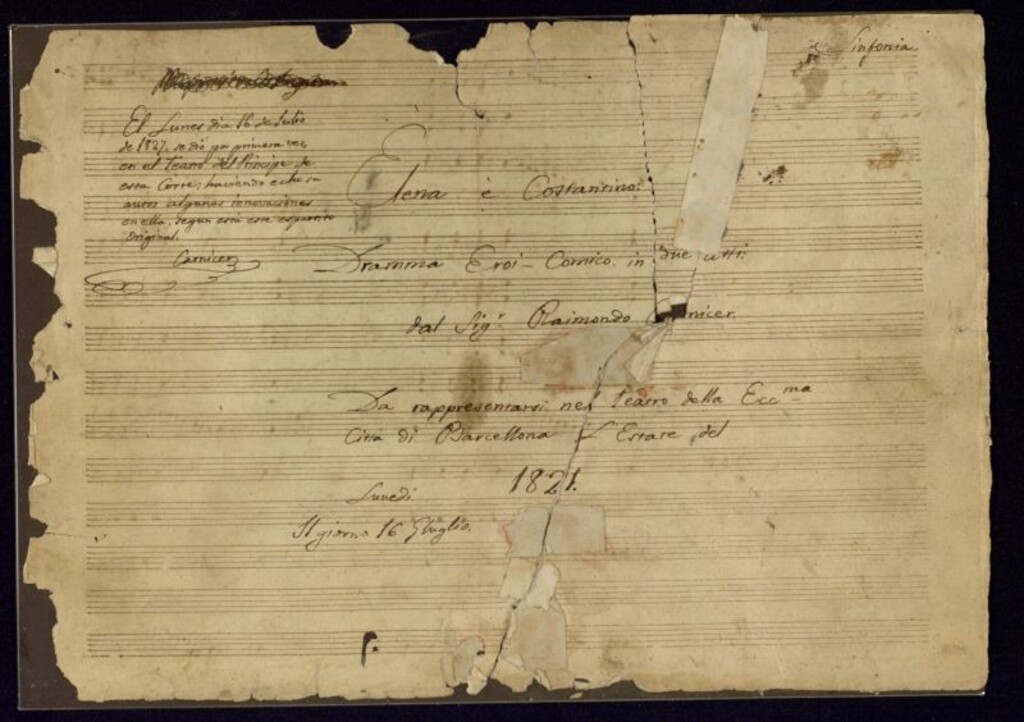 Sinfonia
El Lunes dia 16 de Julio
de 1827. se dió por primera vez
en el Teatro del Principe de
esta Corte; haciendo echo su
autor algunas innovaciones
en ella, segun está este espartito
original.
Carnicer
Elena è Costantino.
Dramma Eroi-Comico in due atti.
dal Sigr. Raimondo nicer.
Da rappresentarsi nel Teatro della Eccma
Città di Barcellona L'Estate del
1821.
Lunedi.
Il giorno 16 Gluglio.